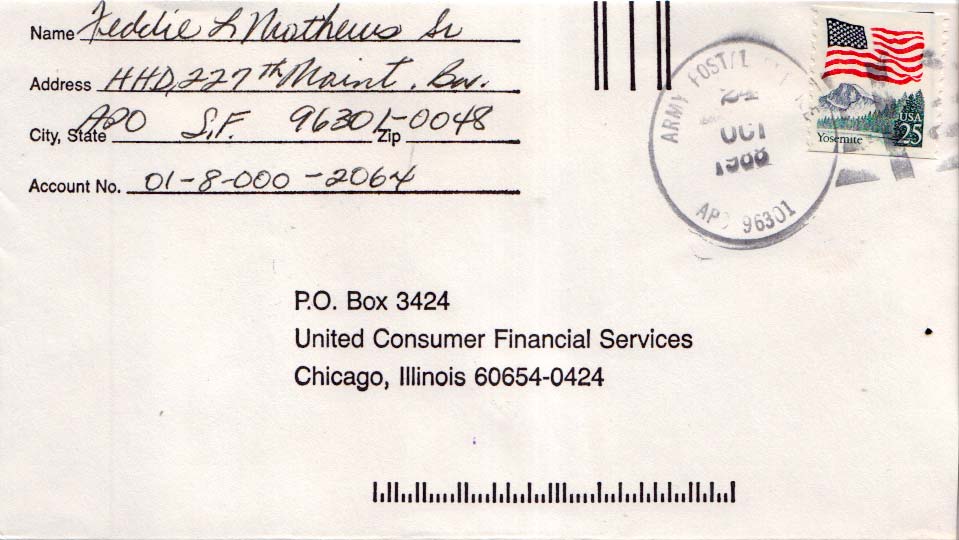 Name Feddie L Mathews Sr
Address HHD, 227th Maint. Bn.
City, State APO S.F. 96301-0048 Zip
Account No. 01-8-000-2064
ARMY POST
24
OCT
1988
APO 96301
Yosemite
USA
25
P.O. Box 3424
United Consumer Financial Services
Chicago, Illinois 60654-0424